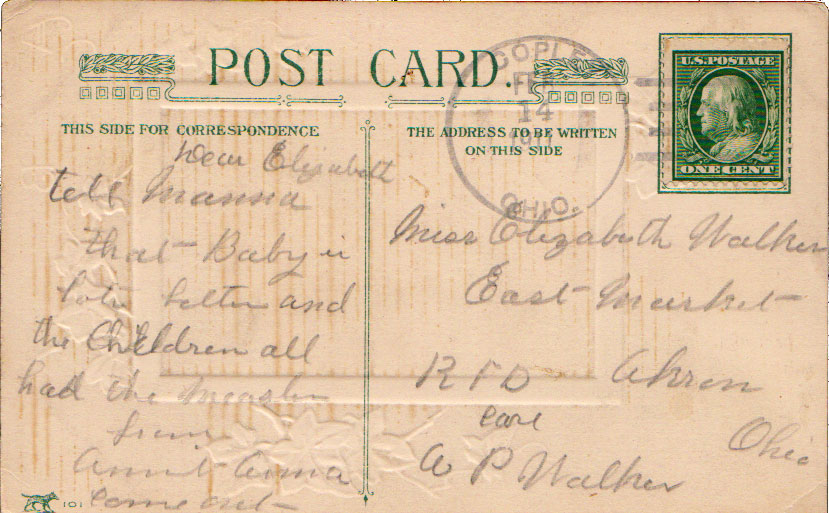 POST CARD.
THIS SIDE FOR CORRESPONDENCE
THE ADDRESS TO BE WRITTEN
ON THIS SIDE
COPLEY
14
OHIO.
U.S. POSTAGE
ONE CENT
Dear Elizabeth
tell Mamma
that Baby is
better and
the Children all
had the Measles
from
Aunt Anna
come out
Miss Elizabeth Walker
East Market
R F D Akron
Care Ohio
A P Walker
101